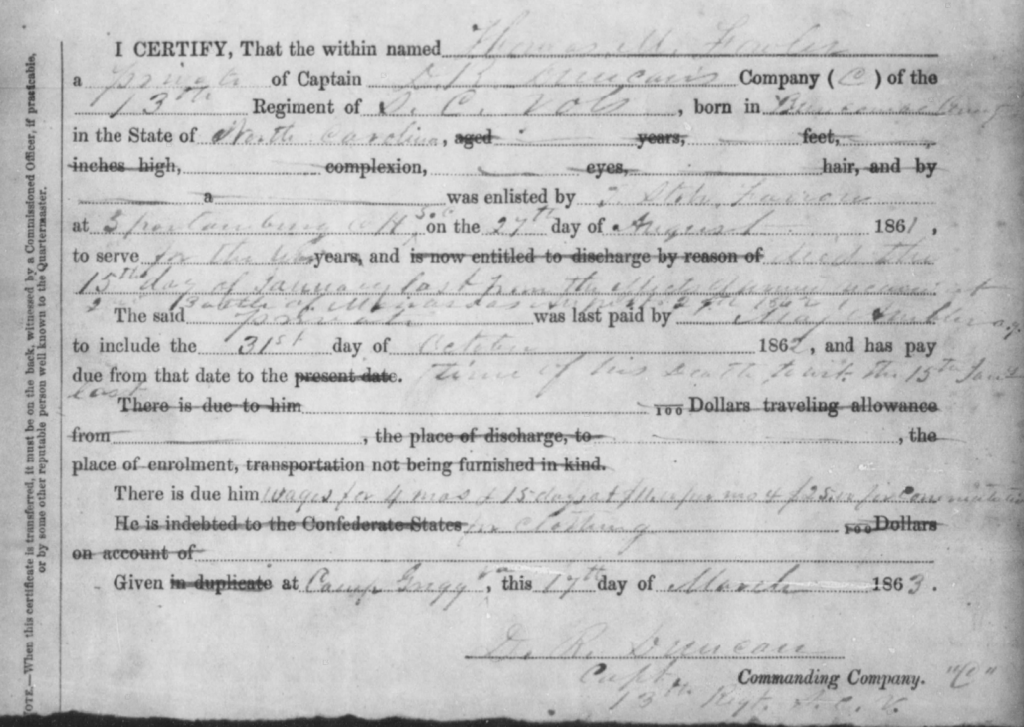 I CERTIFY, That the within named Thomas M. Fowler
a private of Captain D R Duncan's Company (C) of the
13th Regiment of S. C. Vols, born in Buncombe County
in the State of North Carolina, aged years, feet,
inches high, complexion, eyes, hair, and by
a was enlisted by Farrow
at Spartanburg C H S.C on the 27th day of August 1861,
to serve for the war years, and is now entitled to discharge by reason of died the
15th day of January last from the received at
2nd Battle of Manassas 1862
The said private was last paid by Maj Ambler
to include the 31st day of October 1862, and has pay
due from that date to the present date. time of his death to wit the 15th Jany
last
There is due to him 100 Dollars traveling allowance
from , the place of discharge, to , the
place of enrolment, transportation not being furnished in kind.
There is due him wages for 4 mos & 15 days at per mo & $25 commutation
He is indebted to the Confederate States for clothing 100 Dollars
on account of
Given in duplicate at Camp Gregg Va, this 17th day of March 1863.
D. R. Duncan
Capt Commanding Company. "C"
13th Regt. S. C. V.
NOTE.—When this certificate is transferred, it must be on the back, witnessed by a Commissioned Officer, if practicable,
or by some other reputable person well known to the Quartermaster.